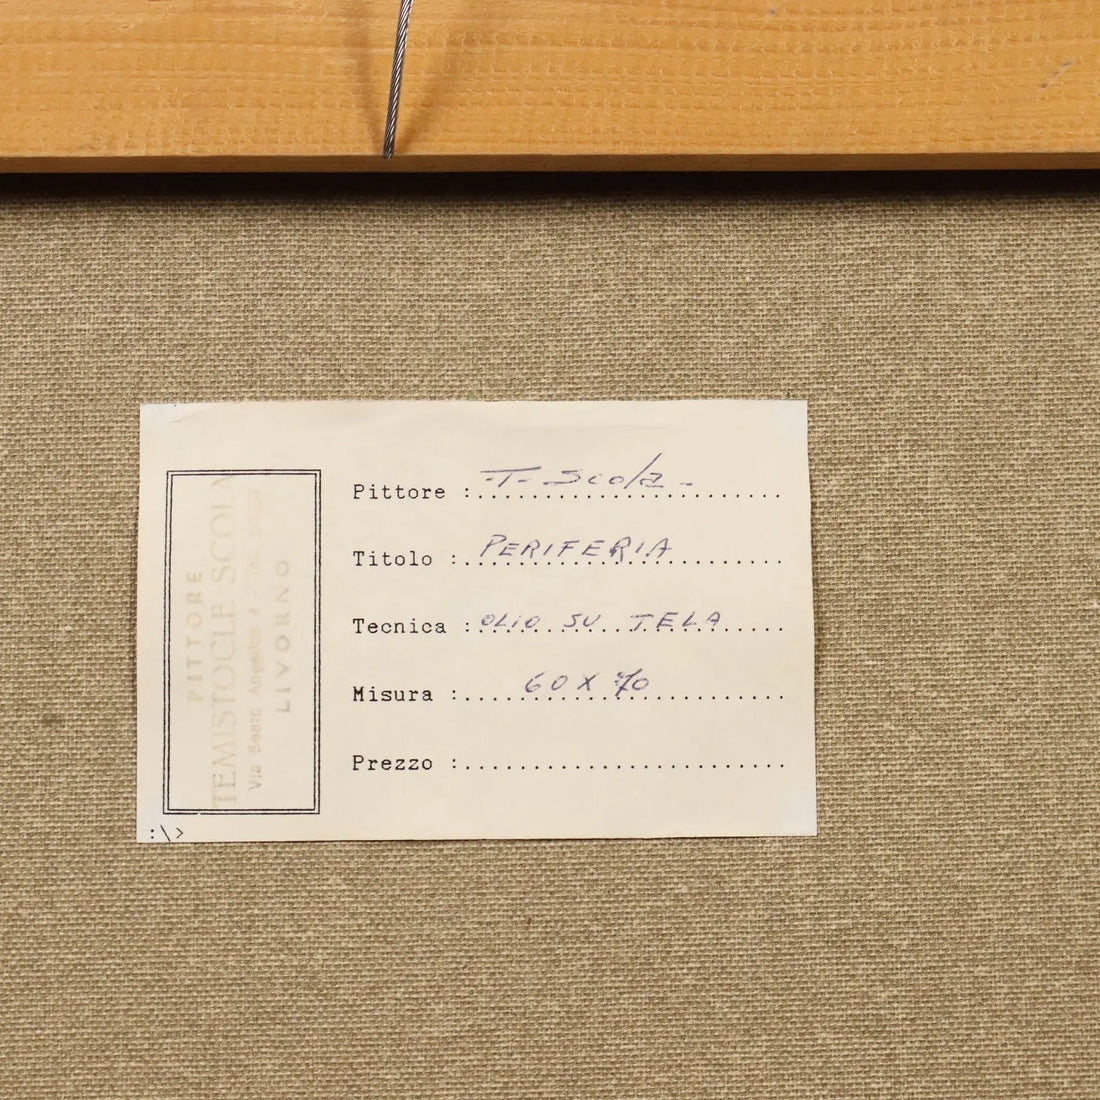 PITTORE
TEMISTOCLE SCOLA
Via Beato Angelico 4 - Tel.
LIVORNO
Pittore : T. Scola
Titolo : PERIFERIA
Tecnica : OLIO SU TELA
Misura : 60 X 70
Prezzo :
:\>